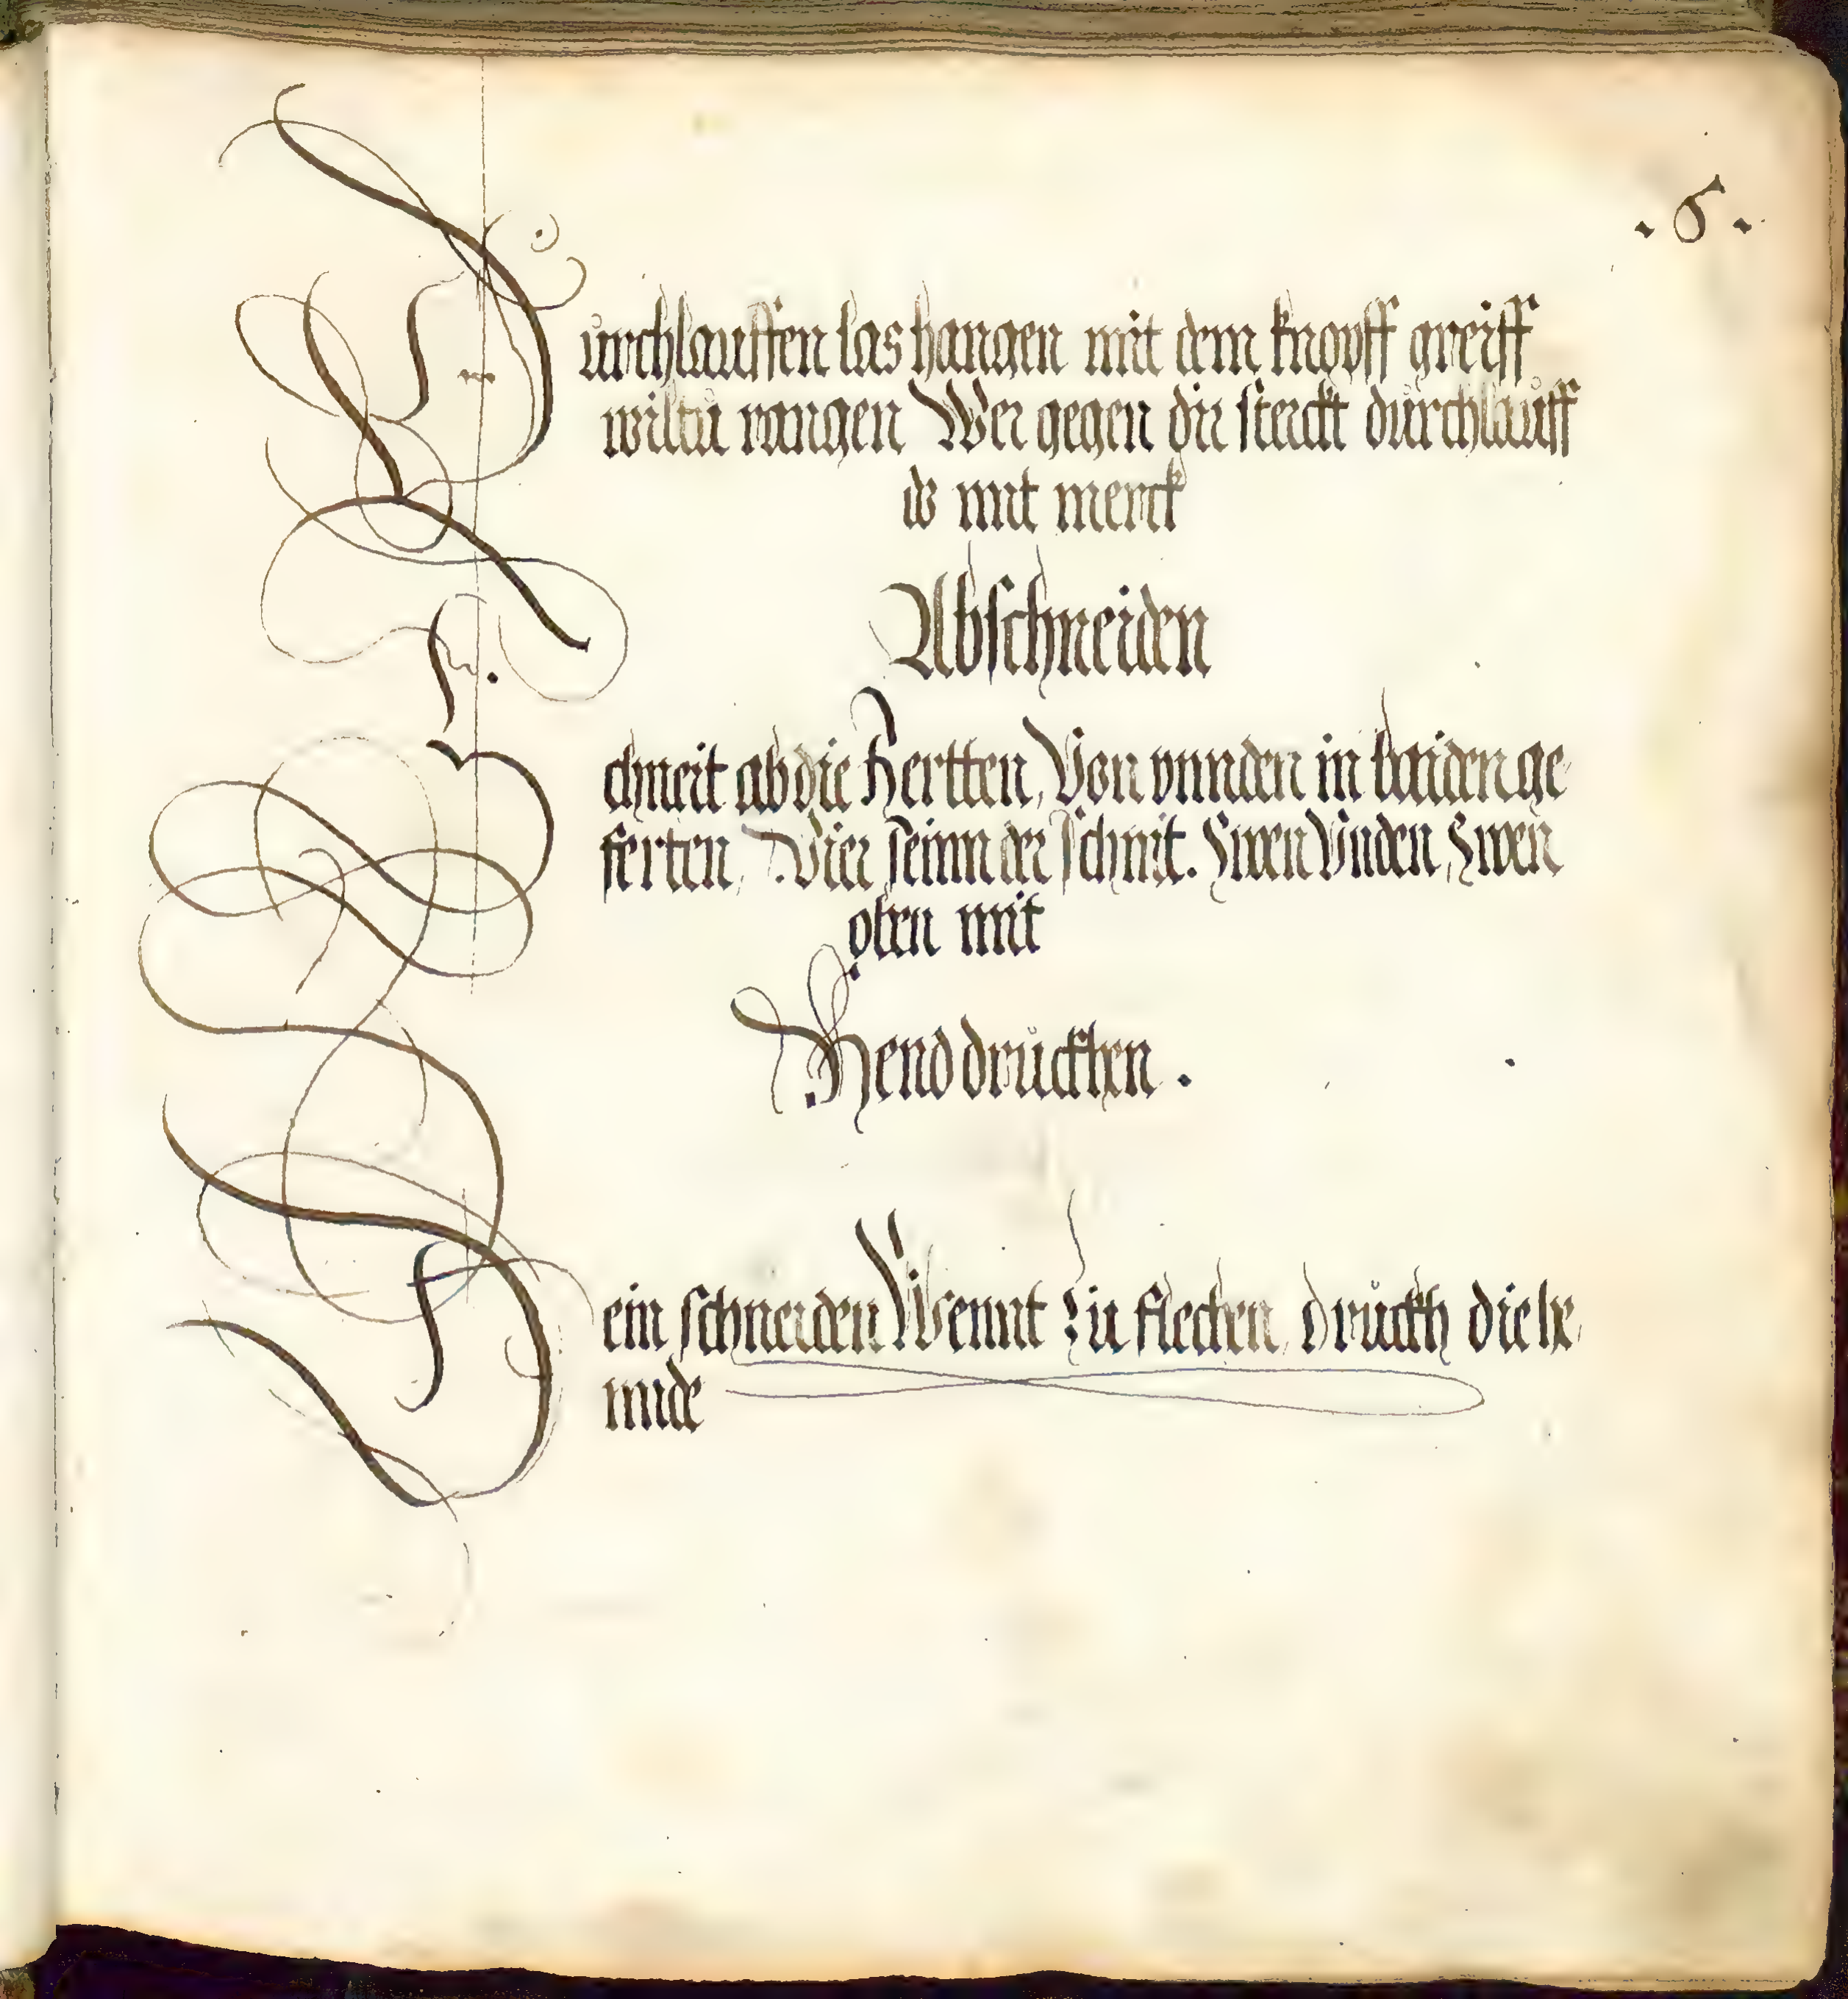 .6.
Durchlauffen las hangen mit dem knopff greiff
wiltu rangen Wer gegen dir sterckt durchlauff
do mit merck
Abschneiden
Schneit ab die Hertten, Von vnnden in baiden ge
ferten, Vier seinn der schnit. Zwen Vnden, Zwen
oben mit
Hend drückhen.
Dein schneiden Wennt Zu flechen, drückh die he
nnde